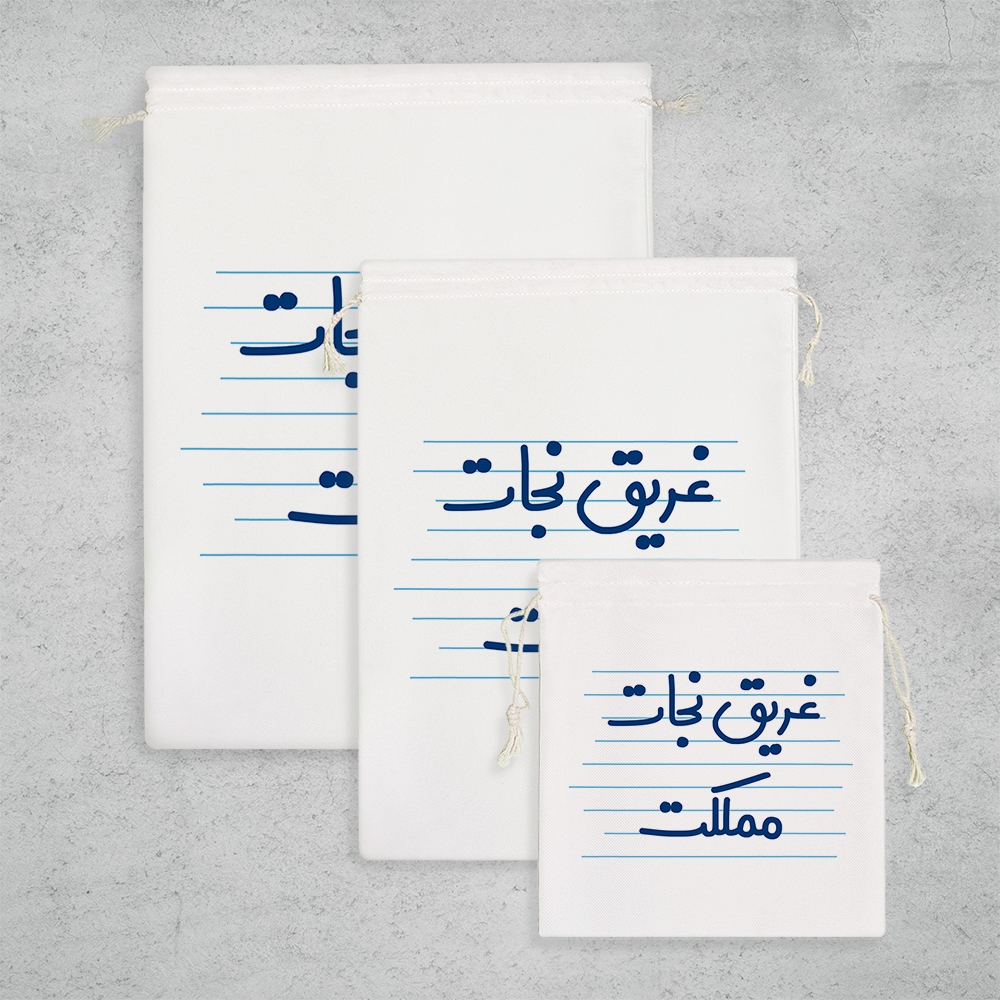 غریق نجات
غریق نجات
مملکت